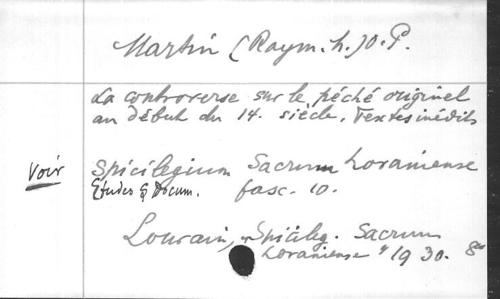 Martin (Raym. h.) O. P.
La controverse sur le péché originel
au début du 14. siècle. Textes inédits
Voir Spicilegium Sacrum Lovaniense
Etudes & Docum. fasc. 10.
Louvain, "Spicileg. Sacrum
Lovaniense" 1930. 8°